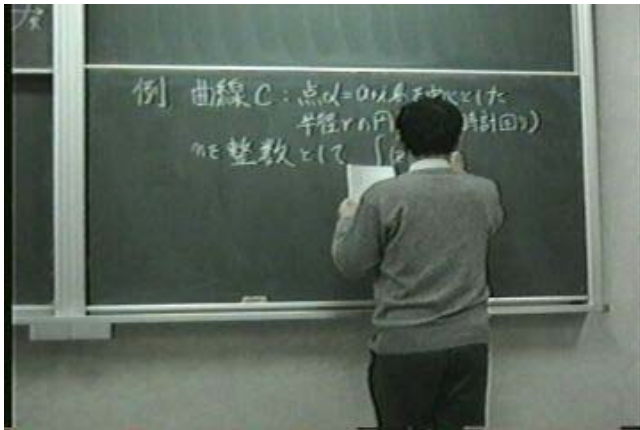 例 曲線C:点α=a+ibを中心とした
半径rの円 時計回り)
nを整数として ∫(z